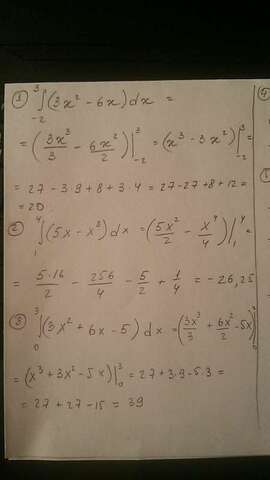 ① ∫₋₂³ (3x² - 6x) dx =
= (3x³/3 - 6x²/2) |₋₂³ = (x³ - 3x²) |₋₂³
= 27 - 3·9 + 8 + 3·4 = 27 - 27 + 8 + 12 =
= 20.
② ∫₁⁴ (5x - x³) dx = (5x²/2 - x⁴/4) |₁⁴
= 5·16/2 - 256/4 - 5/2 + 1/4 = - 26,25
③ ∫₀³ (3x² + 6x - 5) dx = (3x³/3 + 6x²/2 - 5x) |₀³
= (x³ + 3x² - 5x) |₀³ = 27 + 3·9 - 5·3 =
= 27 + 27 - 15 = 39